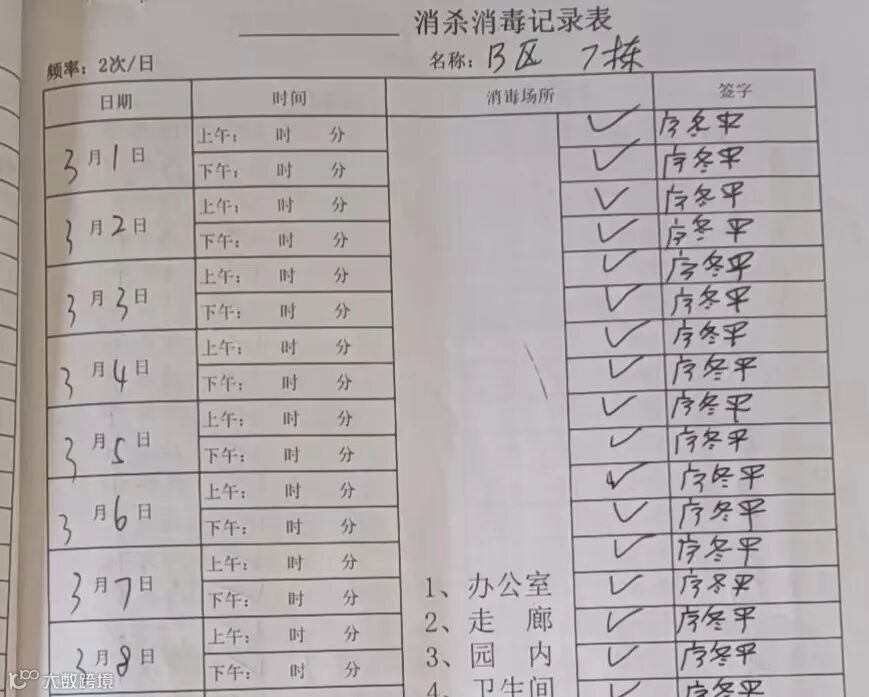 消杀消毒记录表
频率：2次/日
名称：B区 7栋
日期 时间 消毒场所 签字
3月1日 上午： 时 分 ✓ 字冬平
下午： 时 分 ✓ 字冬平
3月2日 上午： 时 分 ✓ 字冬平
下午： 时 分 ✓ 字冬平
3月3日 上午： 时 分 ✓ 字冬平
下午： 时 分 ✓ 字冬平
3月4日 上午： 时 分 ✓ 字冬平
下午： 时 分 ✓ 字冬平
3月5日 上午： 时 分 ✓ 字冬平
下午： 时 分 ✓ 字冬平
3月6日 上午： 时 分 ✓ 字冬平
下午： 时 分 ✓ 字冬平
3月7日 上午： 时 分 ✓ 字冬平
下午： 时 分 1、办公室 ✓ 字冬平
3月8日 上午： 时 分 2、走 廊 ✓ 字冬平
下午： 时 分 3、园 内 ✓ 字冬平
4、卫生间 ✓ 字冬平
大数跨境